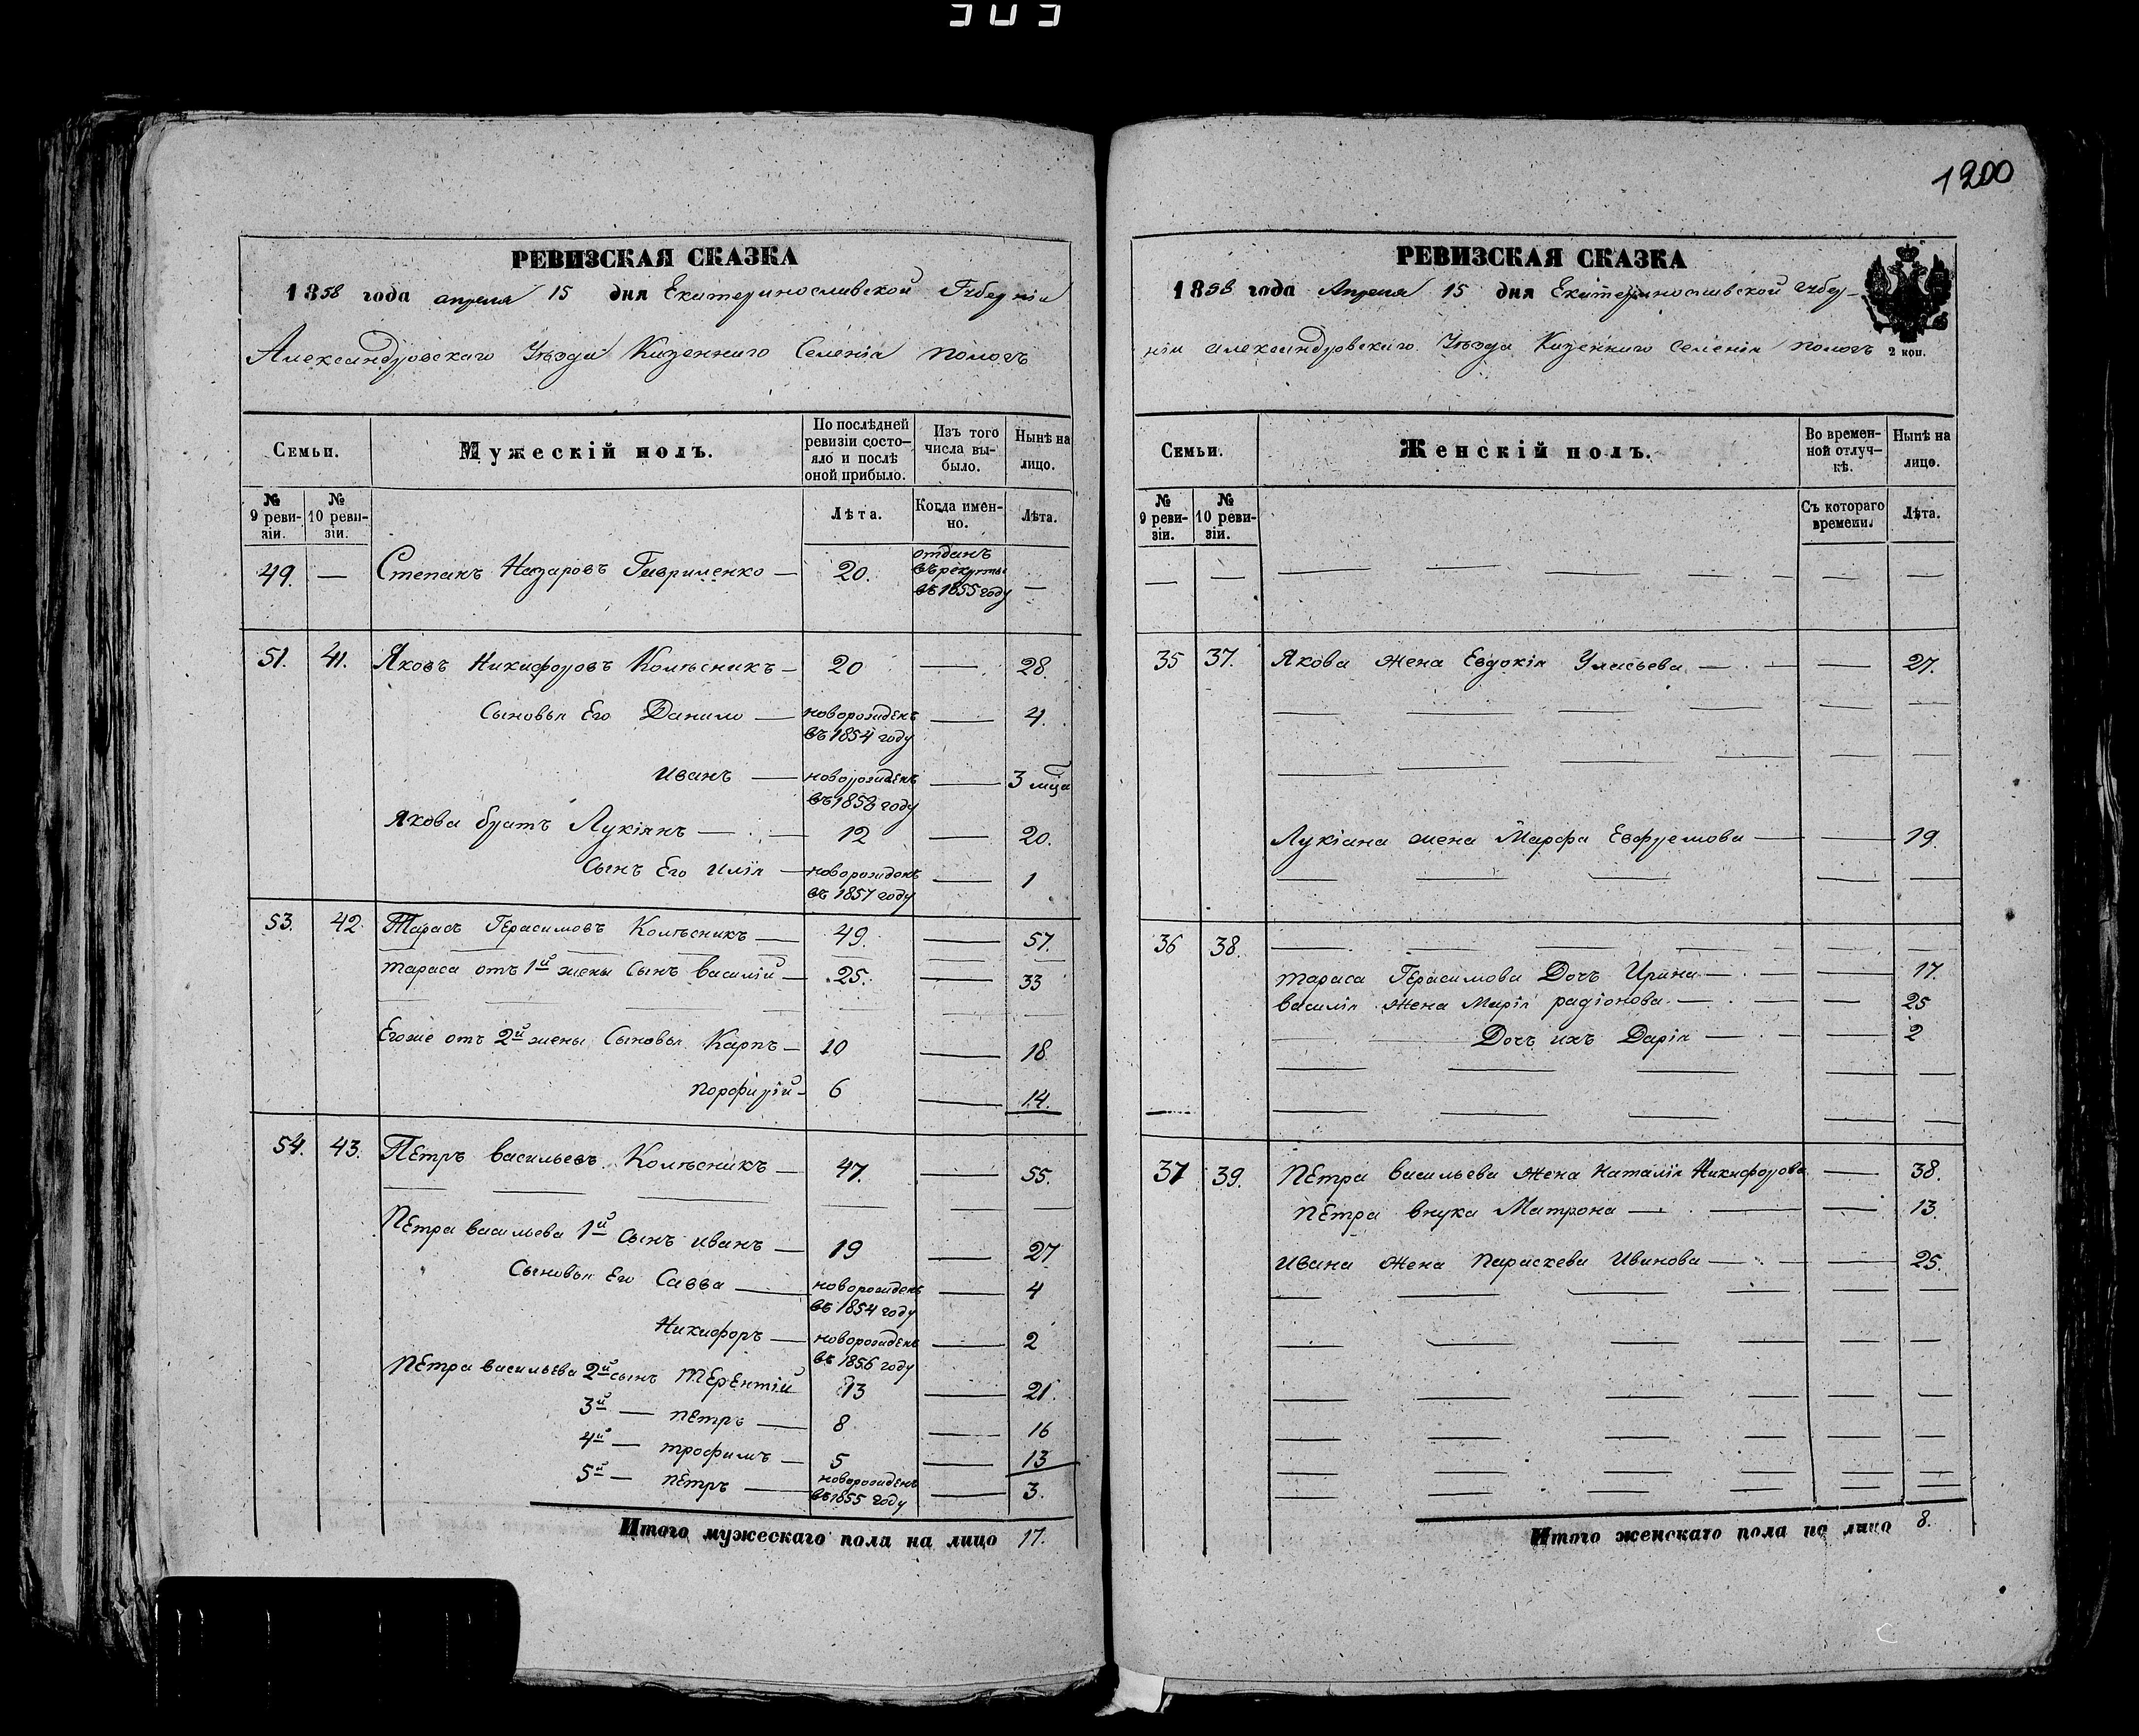 303
1200
РЕВИЗСКАЯ СКАЗКА
1858 года апреля 15 дня Екатеринославской Губерніи
Александровскаго Уѣзда Казеннаго Селенія Пологъ
Семьи.
Мужескій полъ.
По послѣдней ревизіи состояло и послѣ оной прибыло.
Изъ того числа выбыло.
Нынѣ на лицо.
№ 9 ревизіи.
№ 10 ревизіи.
Лѣта.
Когда именно.
Лѣта.
49. — Степанъ Назаровъ Гавриленко — 20. отданъ въ рекруты въ 1855 году —
51. 41. Яковъ Никифоровъ Колѣсникъ — 20 — 28.
Сыновья Его Данило — новорожденъ въ 1854 году — 4.
Иванъ — новорожденъ въ 1858 году — 3 мца
Якова братъ Лукіянъ — 12 — 20.
Сынъ Его Илія — новорожденъ въ 1857 году — 1
53. 42. Тарасъ Герасимовъ Колѣсникъ — 49. — 57.
Тараса отъ 1й жены Сынъ Василій — 25. — 33
Егоже отъ 2й жены Сыновья Карпъ — 10 — 18
Порфирій — 6 — 14.
54. 43. Петръ Васильевъ Колѣсникъ — 47. — 55.
Петра Васильева 1й Сынъ Иванъ — 19 — 27
Сыновья Его Савва — новорожденъ въ 1854 году — 4
Никифоръ — новорожденъ въ 1856 году — 2
Петра Васильева 2й сынъ Терентій 13 — 21.
3й — Петръ — 8 — 16
4й — Трофимъ — 5 — 13
5й — Петръ — новорожденъ въ 1855 году — 3.
Итого мужескаго пола на лицо 17.
РЕВИЗСКАЯ СКАЗКА
1858 года Апреля 15 дня Екатеринославской Губер-
ніи Александровскаго Уѣзда Казеннаго Селенія Пологъ
2 коп.
Семьи.
Женскій полъ.
Во временной отлучкѣ.
Нынѣ на лицо.
№ 9 ревизіи.
№ 10 ревизіи.
Съ котораго времени.
Лѣта.
35 37. Якова жена Евдокія Уласьева — — 27.
Лукіана жена Марфа Евфремова — — 19.
36 38.
Тараса Герасимова Дочь Ирина — — 17.
Василія жена Марія Радіонова — — 25
Дочь ихъ Дарія — — 2
37 39. Петра Васильева жена Наталія Никифорова — 38.
Петра внука Матрона — — 13.
Ивана жена Параскева Иванова — — 25.
Итого женскаго пола на лицо 8.